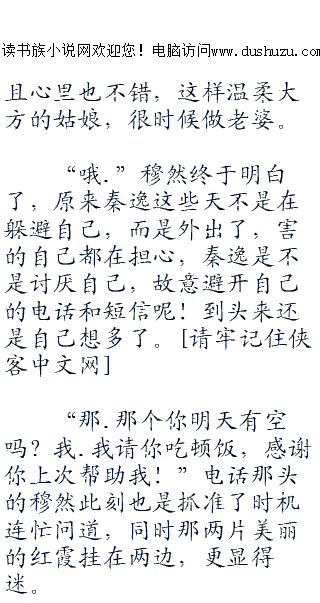 读书族小说网欢迎您！电脑访问www.dushuzu.com
且心里也不错，这样温柔大
方的姑娘，很时候做老婆。
“哦.”穆然终于明白
了，原来秦逸这些天不是在
躲避自己，而是外出了，害
的自己都在担心，秦逸是不
是讨厌自己，故意避开自己
的电话和短信呢！到头来还
是自己想多了。[请牢记住侠
客中文网]
“那.那个你明天有空
吗？我.我请你吃顿饭，感谢
你上次帮助我！”电话那头
的穆然此刻也是抓准了时机
连忙问道，同时那两片美丽
的红霞挂在两边，更显得
迷。